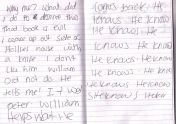 Why me? What did
I do to deserve this
That book is evil
I come up out side of
Hollies house with
a knife I don't
like him William
did not do he
tells me! I t was
peter William
Helps what he
comes back. He
knows He know
He knows. He
knows He knows
He knows He knows
He knows He knows
He knows He knows